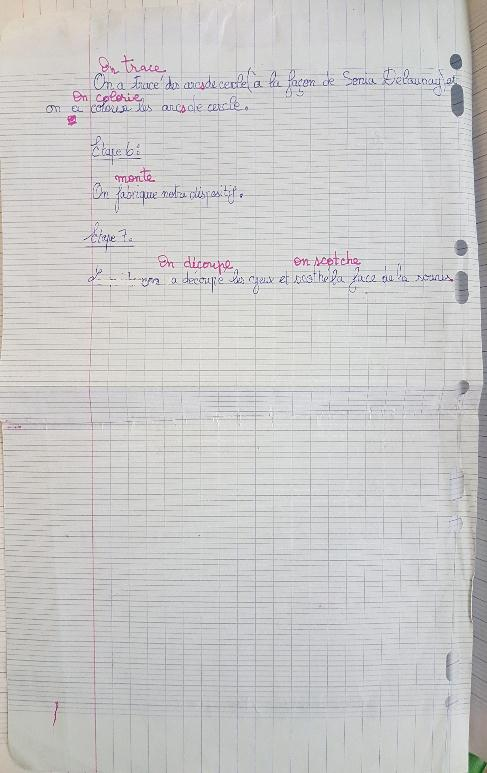 On trace
On a tracé des arcs de cercle (à la façon de Sonia Delaunay) et
On colorie
on a colorié les arcs de cercle.
Étape 6 :
monte
On fabrique notre dispositif.
Étape 7.
On découpe on scotche
on a découpé les yeux et scothé la face de la souris.